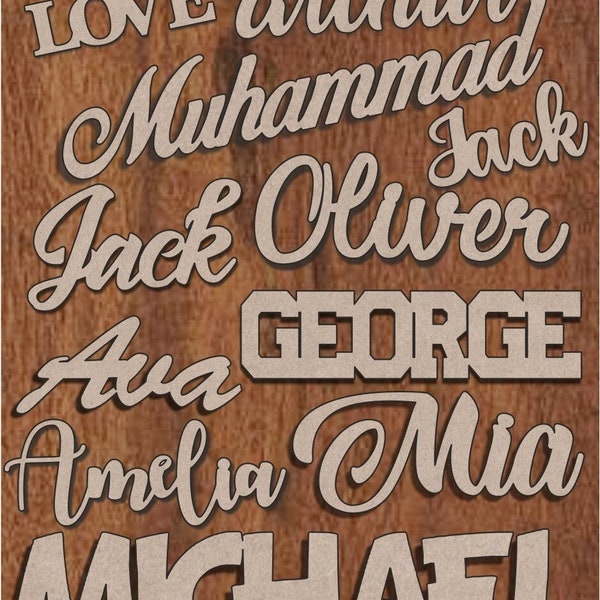 LOVE
Muhammad
Jack
Jack Oliver
GEORGE
Ava
Amelia Mia
MICHAEL